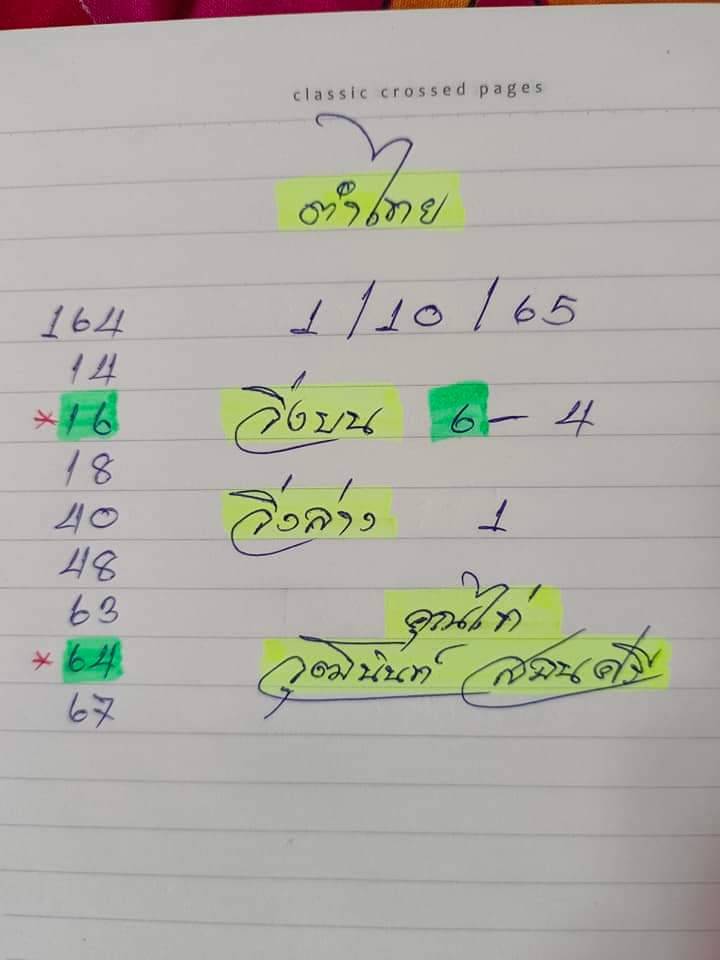 classic crossed pages
ตำไทย
164 1/10/65
14
*16 วิ่งบน 6-4
18
40 วิ่งล่าง 1
48
63 คุณไก่
*64 วุฒินันท์
67